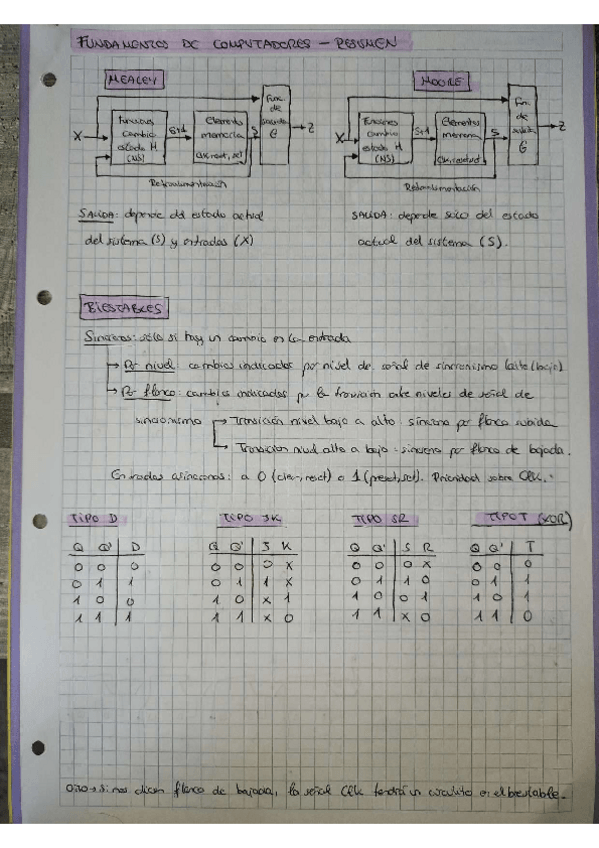 FUNDAMENTOS DE COMPUTADORES - RESUMEN
MEALEY
MOORE
Funciones cambio estado H (NS)
S+1
Elementos memoria
Clk, reset, set
S
Func. de salida G
X
Z
Retroalimentación
Funciones cambio estado H (NS)
S+1
Elementos memoria
Clk, reset, set
S
Fun. de salida G
X
Z
Retroalimentación
SALIDA: depende del estado actual
del sistema (S) y entradas (X)
SALIDA: depende solo del estado
actual del sistema (S).
BIESTABLES
Síncronos: sólo si hay un cambio en la entrada
Por nivel: cambios indicados por nivel de señal de sincronismo (alto/bajo)
Por flanco: cambios indicados por la transición entre niveles de señal de
sincronismo
Transición nivel bajo a alto: síncrono por flanco subida
Transición nivel alto a bajo: síncrono por flanco de bajada.
Entradas asíncronas: a 0 (clear, reset) o 1 (preset, set). Prioridad sobre Clk.
TIPO D
TIPO JK
TIPO SR
TIPO T (XOR)
Q Q' D
0 0 0
0 1 1
1 0 0
1 1 1
Q Q' J K
0 0 0 X
0 1 1 X
1 0 X 1
1 1 X 0
Q Q' S R
0 0 0 X
0 1 1 0
1 0 0 1
1 1 X 0
Q Q' T
0 0 0
0 1 1
1 0 1
1 1 0
Ojo → Si nos dicen flanco de bajada, la señal Clk tendrá un circulito en el biestable.